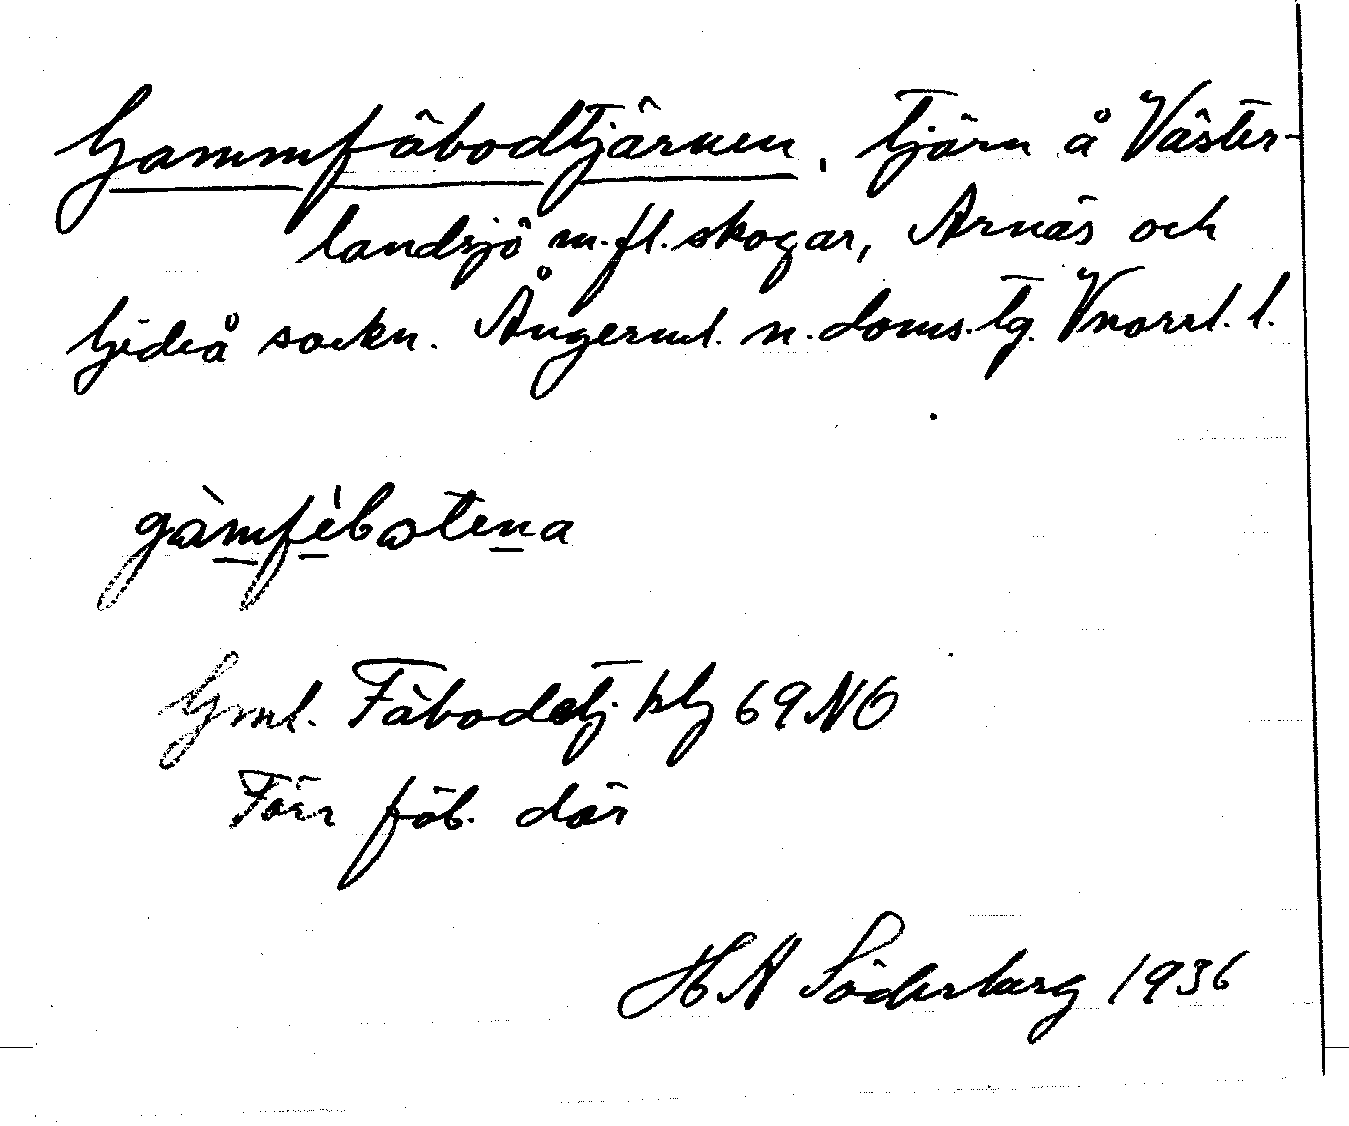 Gammfäbodtjärnen, tjärn å Väster-
landsjö m.fl. skogar, Arnäs och
Gideå sockn. Ångerml. n. doms. tg. Vnorrl. l.
gàmfèbotena
Gml. Fäbodtj. klg 69 NO
Förr fäb. där
HA Söderberg 1936